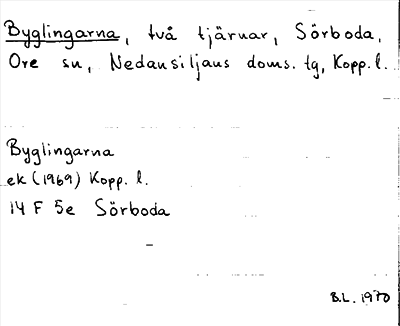 Byglingarna, två tjärnar, Sörboda,
Ore sn, Nedansiljans doms. tg, Kopp. l.
Byglingarna
ek (1969) Kopp. l.
14 F 5e Sörboda
B.L. 1970